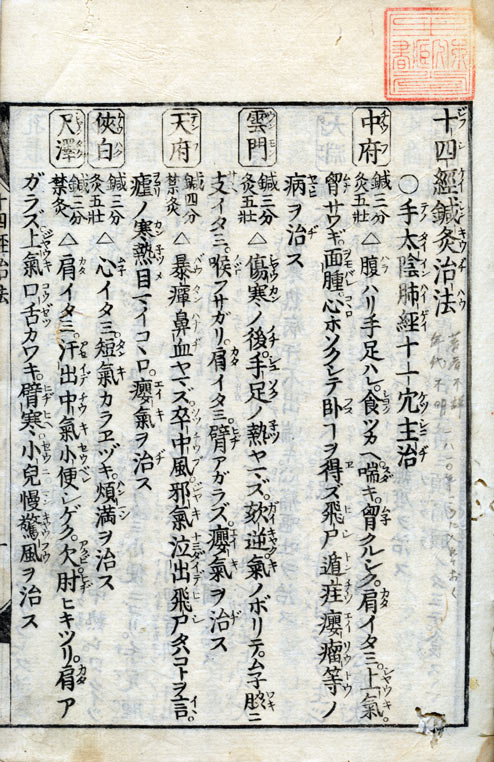 十四經鍼灸治法
〇手太陰肺經十一穴主治
中府 鍼三分 灸五壯 △腹ハリ手足ハレ。食ツカヘ喘キ。胷クルシク。肩イタミ。上氣。
胷サワギ。面腫。心ホソクシテ臥コヲ得ズ。飛尸遁疰。癭瘤等ノ
病ヲ治ス
雲門 鍼三分 灸五壯 △傷寒ノ後。手足ノ熱ヤマズ。欬逆氣ノボリテ。ム子脇ニ
支イタミ。喉フサガリ。肩イタミ。臂アガラズ。癭氣ヲ治ス
天府 鍼四分 禁灸 △暴痺。鼻血ヤマズ。卒中風。邪氣泣出。飛尸
瘧ノ寒熱。目マイ。癭氣ヲ治ス
俠白 鍼三分 灸五壯 △心イタミ。短氣。カラヱヅキ。煩滿ヲ治ス
尺澤 鍼三分 禁灸 △肩イタミ。汗出。中氣。小便シゲク。欠。肘ヒキツリ。肩ア
ガラズ。上氣。口舌カワキ。臂寒。小兒慢驚風ヲ治ス
十四經治法